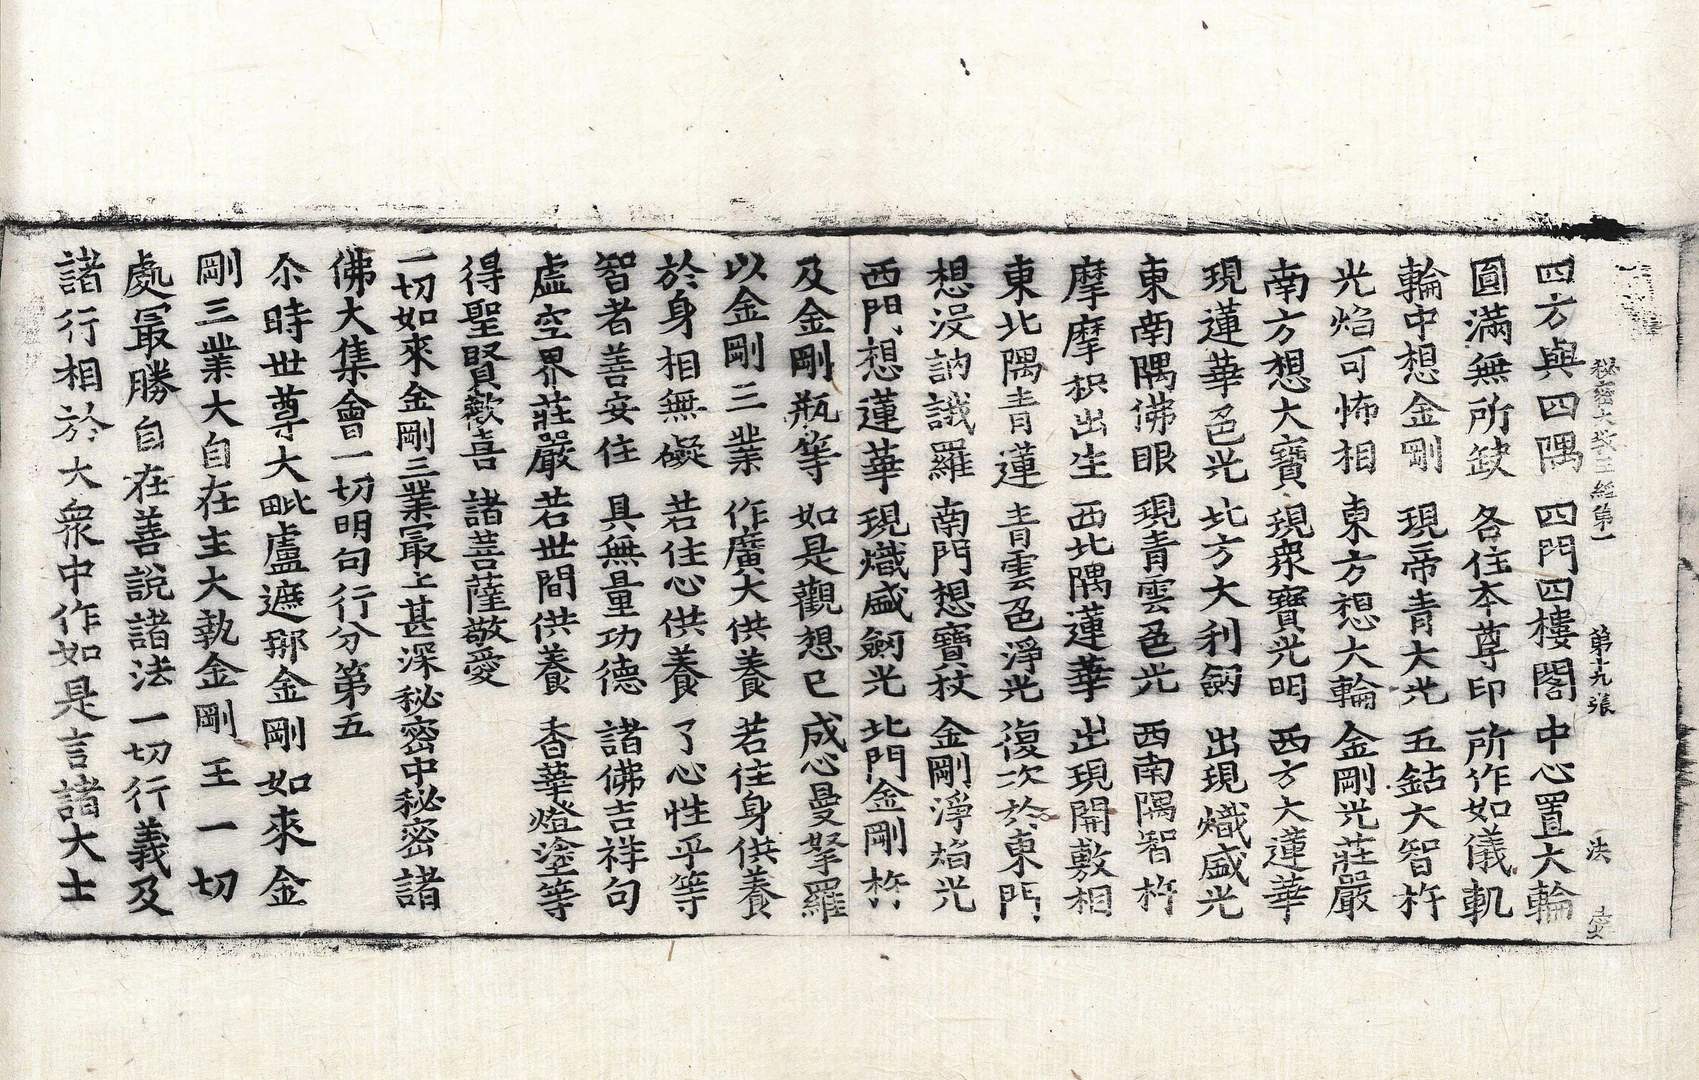 秘密大教王經第一 第十九張 決
四方與四隅 四門四樓閣 中心置大輪
圓滿無所缺 各住本尊印 所作如儀軌
輪中想金剛 現帝青大光 五鈷大智杵
光焰可怖相 東方想大輪 金剛光莊嚴
南方想大寶 現衆寶光明 西方大蓮華
現蓮華色光 北方大利劒 出現熾盛光
東南隅佛眼 現青雲色光 西南隅智杵
摩摩枳出生 西北隅蓮華 出現開敷相
東北隅青蓮 青雲色淨光 復次於東門
想沒訥誐羅 南門想寶杖 金剛淨焰光
西門想蓮華 現熾盛劒光 北門金剛杵
及金剛瓶等 如是觀想已 成心曼拏羅
以金剛三業 作廣大供養 若住身供養
於身相無礙 若住心供養 了心性平等
智者善安住 具無量功德 諸佛吉祥句
虛空界莊嚴 若世間供養 香華燈塗等
得聖賢歡喜 諸菩薩敬愛
一切如來金剛三業最上甚深秘密中秘密諸
佛大集會一切明句行分第五
尒時世尊大毗盧遮那金剛如來金
剛三業大自在主大執金剛王一切
處最勝自在善說諸法一切行義及
諸行相於大衆中作如是言諸大士